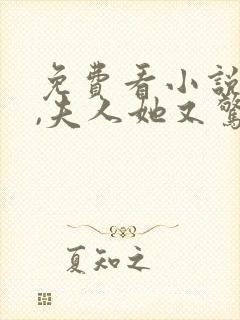 免費看小說
,夫人她又驚
夏知之